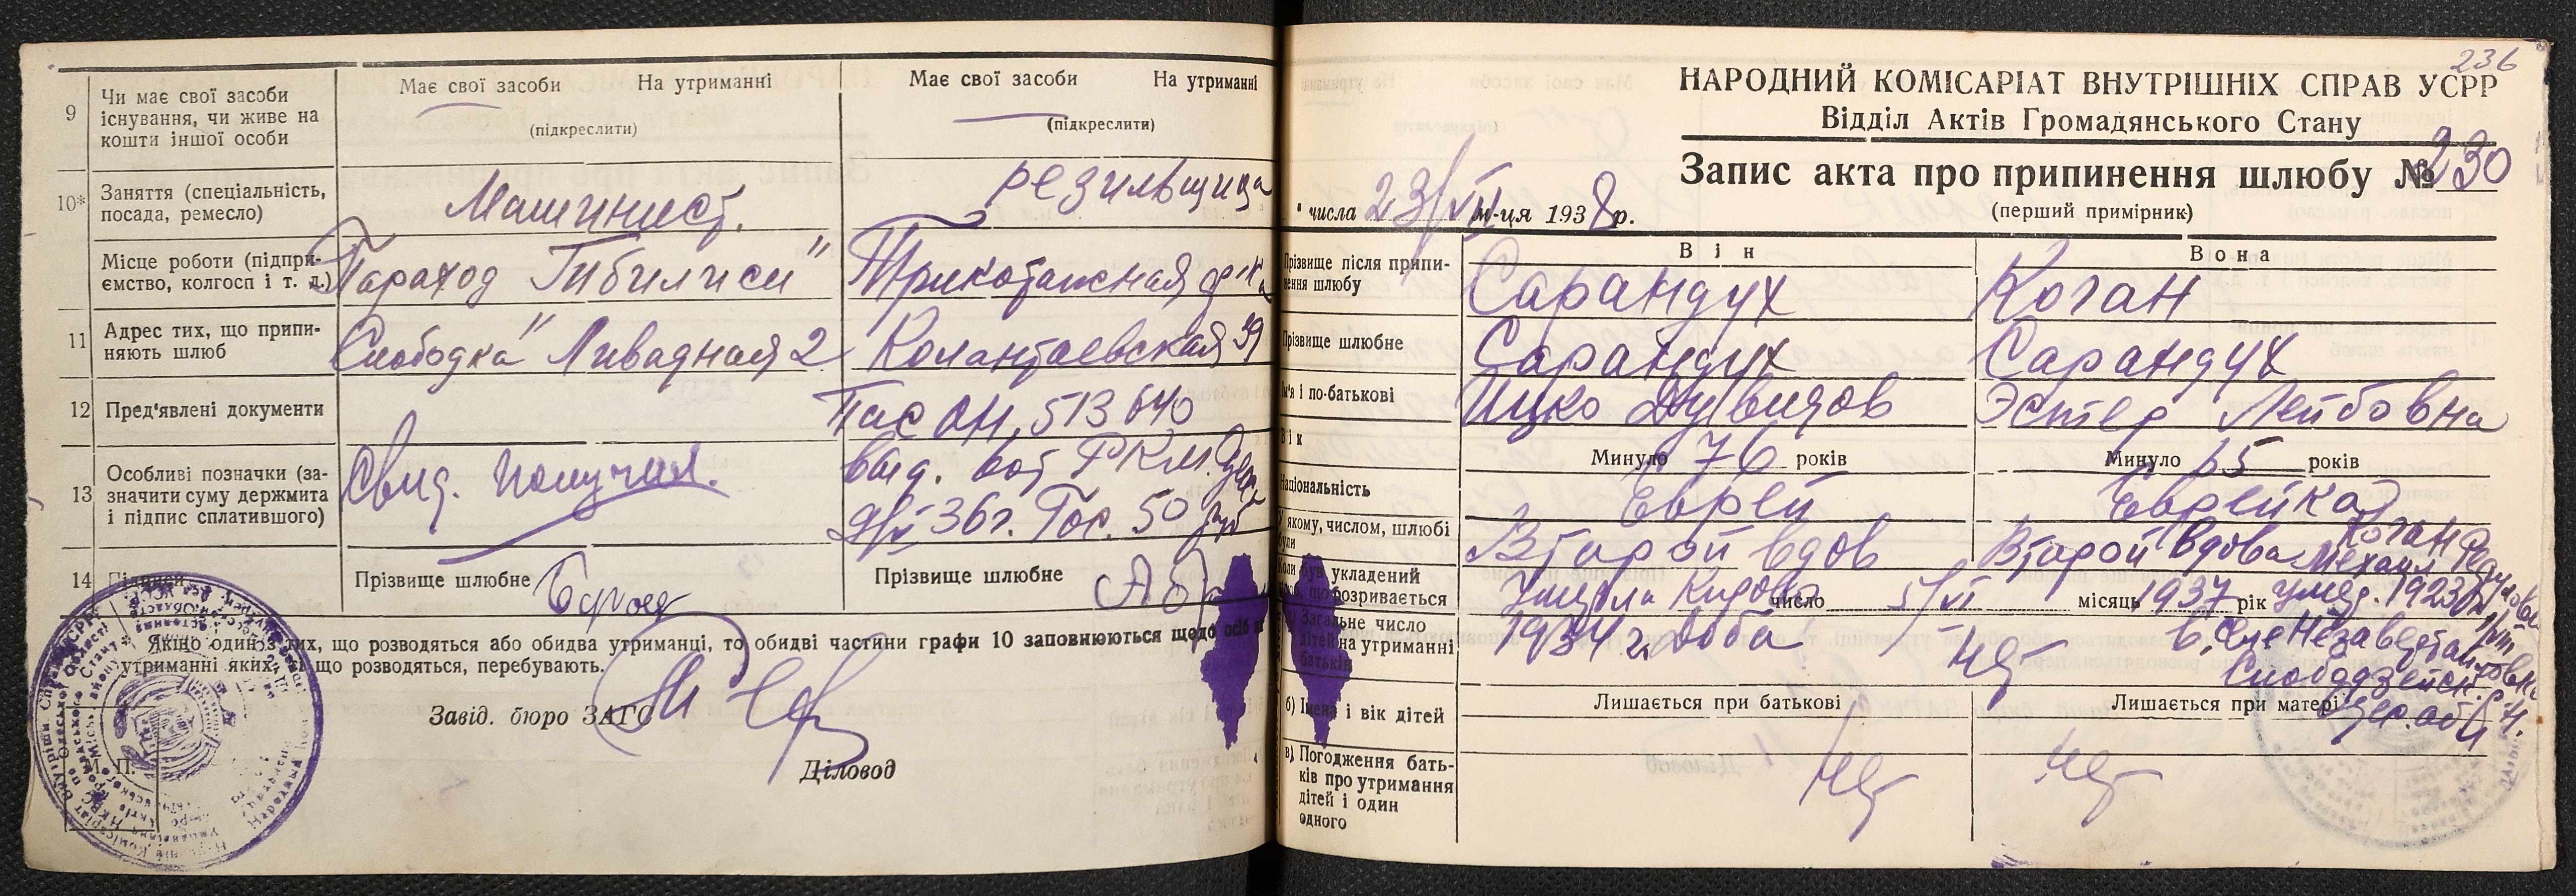 9 Чи має свої засоби існування, чи живе на кошти іншої особи
Має свої засоби На утриманні
(підкреслити)
Має свої засоби На утриманні
(підкреслити)
10* Заняття (спеціальність, посада, ремесло)
Машинист.
резильщица
Місце роботи (підпри-ємство, колгосп і т. д.)
Параход Тбилиси"
Трикотажная
11 Адрес тих, що припи-няють шлюб
Слободка" Ливадная 2
Колантаевская 39
12 Пред'явлені документи
Пас 513640
13 Особливі позначки (за-значити суму держмита і підпис сплатившого)
Свид. получил.
выд. РКМ
36г. Гос. 50 руб
14 Підписи
Прізвище шлюбне
Прізвище шлюбне
Якщо один з тих, що розводяться або обидва утриманці, то обидві частини графи 10 заповнюються щодо осіб на
утриманні яких, ті що розводяться, перебувають.
Завід. бюро ЗАГС
Діловод
М. П.
236
НАРОДНИЙ КОМІСАРІАТ ВНУТРІШНІХ СПРАВ УСРР
Відділ Актів Громадянського Стану
Запис акта про припинення шлюбу № 230
(перший примірник)
" числа 23/VII м-ця 1938 р.
Він
Вона
Прізвище після припи-нення шлюбу
Сарандух
Коган
Прізвище шлюбне
Сарандух
Сарандух
Ім'я і по-батькові
Ицко Дувидов
Эстер Лейбовна
Вік
Минуло 76 років
Минуло 65 років
Національність
Еврей
Еврейка
У якому, числом, шлюбі були
Второй вдов
Второй вдова Коган
Коли був укладений шлюб, що розривається
Умерла
число 5/VI місяць 1937 рік
умер. 1923
1934 г.
а) Загальне число дітей на утриманні батьків
нет
б) Імена і вік дітей
Лишається при батькові
Лишається при матері
в) Погодження бать-ків про утримання дітей і один одного
нет
нет